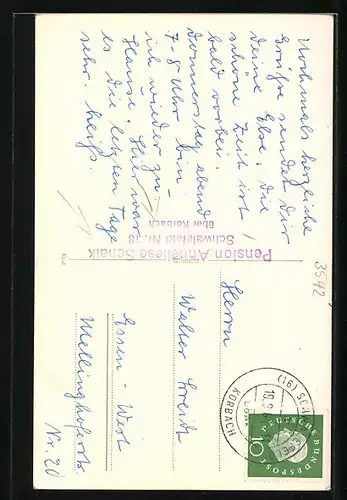 Nochmals herzliche
Grüße sendet Dir
deine Else. Die
schöne Zeit ist
bald vorbei.
Donnerstag abend
7-8 Uhr bin
ich wieder zu-
Hause. Hier war
es die letzten Tage
sehr heiß.
Pension Anneliese Schalk
Schwalefeld Nr. 78
über Korbach
3542
Herrn
Walter
Essen-West
Nr. 20
KORBACH
DEUTSCHE BUNDESPOST
10